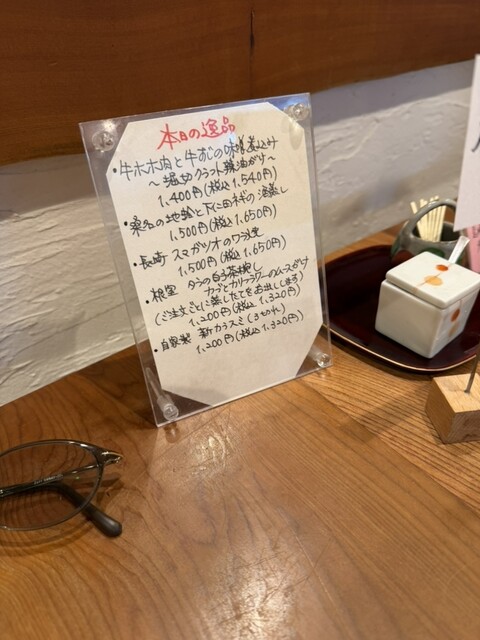 本日の逸品
・牛ホホ肉と牛すじの味噌煮込み
～堀切クラフト辣油がけ～
1,400円(税込1,540円)
・桑名の地蛤と下仁田ネギの酒蒸し
1,500円(税込1,650円)
・長崎 スマガツオのワラ焼
1,500円(税込1,650円)
・根室 タラの白子茶椀蒸し
カブとカリフラワーのムースがけ
(ご注文ごとに蒸したてをお出しします)
1,200円(税込1,320円)
・自家製 新カラスミ(3切れ)
1,200円(税込1,320円)